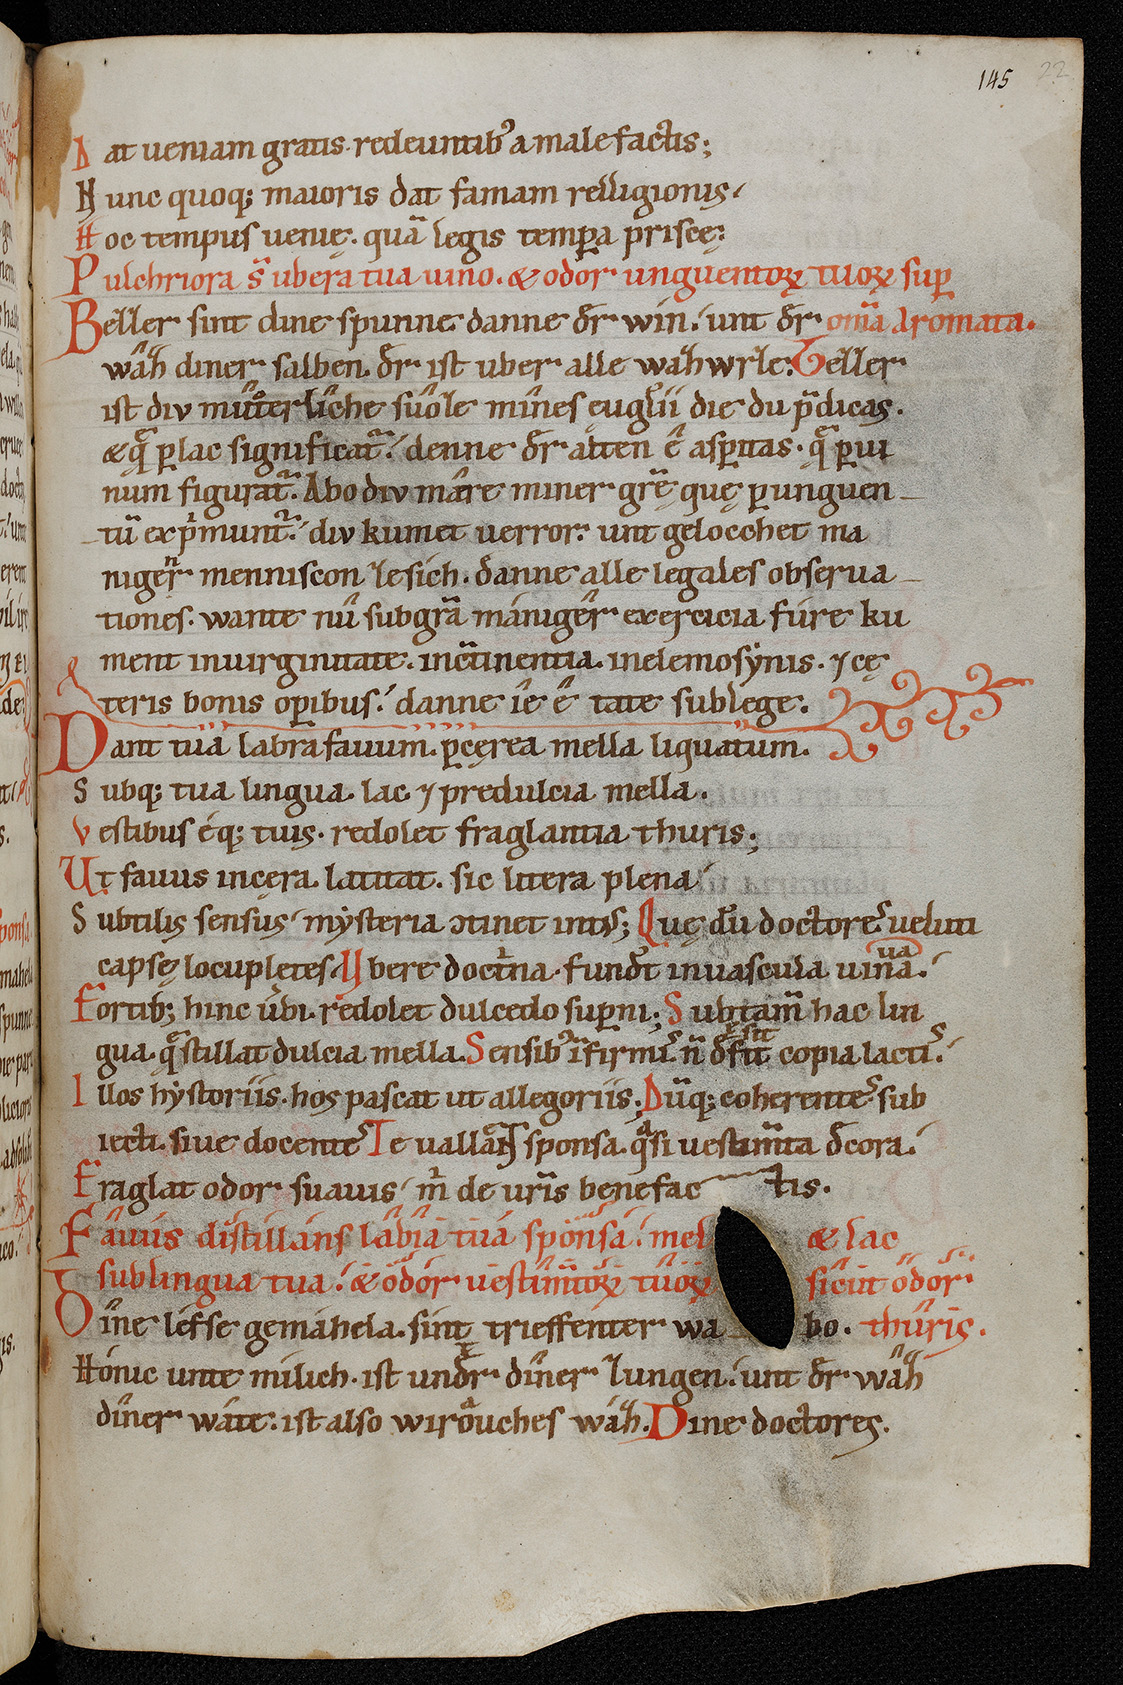 145 22
Dat ueniam gratis. redeuntib᾽ a malefactis;
Nunc quoq; maioris dat famam relligionis.
Hoc tempus uenię. quā legis tempꝑa priscę:
Pulchriora s̄ ubera tua uino. & odor unguentoꝝ tuoꝝ suꝑ
Beller sint dine spunne danne dr̄ win. unt dr̄ om̄ia aromata.
wâh diner salben. dr̄ ist uber alle wâhwrze. Beller
ist div mûterliche sûoze mines euglii die du p̄dicas.
& q̄ ꝑ lac significat᷑. denne dr̄ alten ē asꝑitas. q̄ ꝑ ui
num figurat᷑. Abo div mâre miner grę̄ quę ꝑ unguen
tū exp̄munt᷑. div kumet uerror. unt gelocchet ma
niger̄ menniscon ze sich. danne alle legales obserua
tiones. wante nû sub gr̄a maniger̄ exercicia fure ku
ment in uirginitate. in c̄tinentia. in elemosẏnis. ⁊ cę
teris bonis oꝑibus. danne îe ê tate sub lege.
Dant tua labra fauum. ꝑ cęrea mella liquatum.
Subq; tua lingua. lac ⁊ predulcia mella.
Vestibus éq; tuis. redolet fraglantia thuris;
Ut fauus in cera. latitat. sic litera plena
Subtilis sensus mẏsteria ↄtinet int᾽; Quę dū doctores ueluti
capsę locupletes Ubere doct̄na. fundt̄ in uascula uina.
Fortib; hinc ubi. redolet dulcedo suꝑni; Sub tam̄ hac lin
gua. q̄ stillat dulcia mella. Sensib᾽ īfirmis n̄ copia lactis.
Illos hẏstoriis. hos pascat ut allegoriis; Dūq; coherentes sub
iecti. siue docentes Te uallant sponsa. q̄si uestim̄ta dcora.
Fraglat odor suauis m̄ de ur̄is benefactis.
Fauus distillans labia tua sponsa. mel & lac
sub lingua tua. & odor uestim̄toꝝ tuoꝝ sicut odor
Dine lefse gemahela. sint trieffenter wabo. thuris.
Honic unte milich. ist undr̄ diner zungen. unt dr̄ wâh
diner wâte. ist also wirouches wâh. Dine doctores.